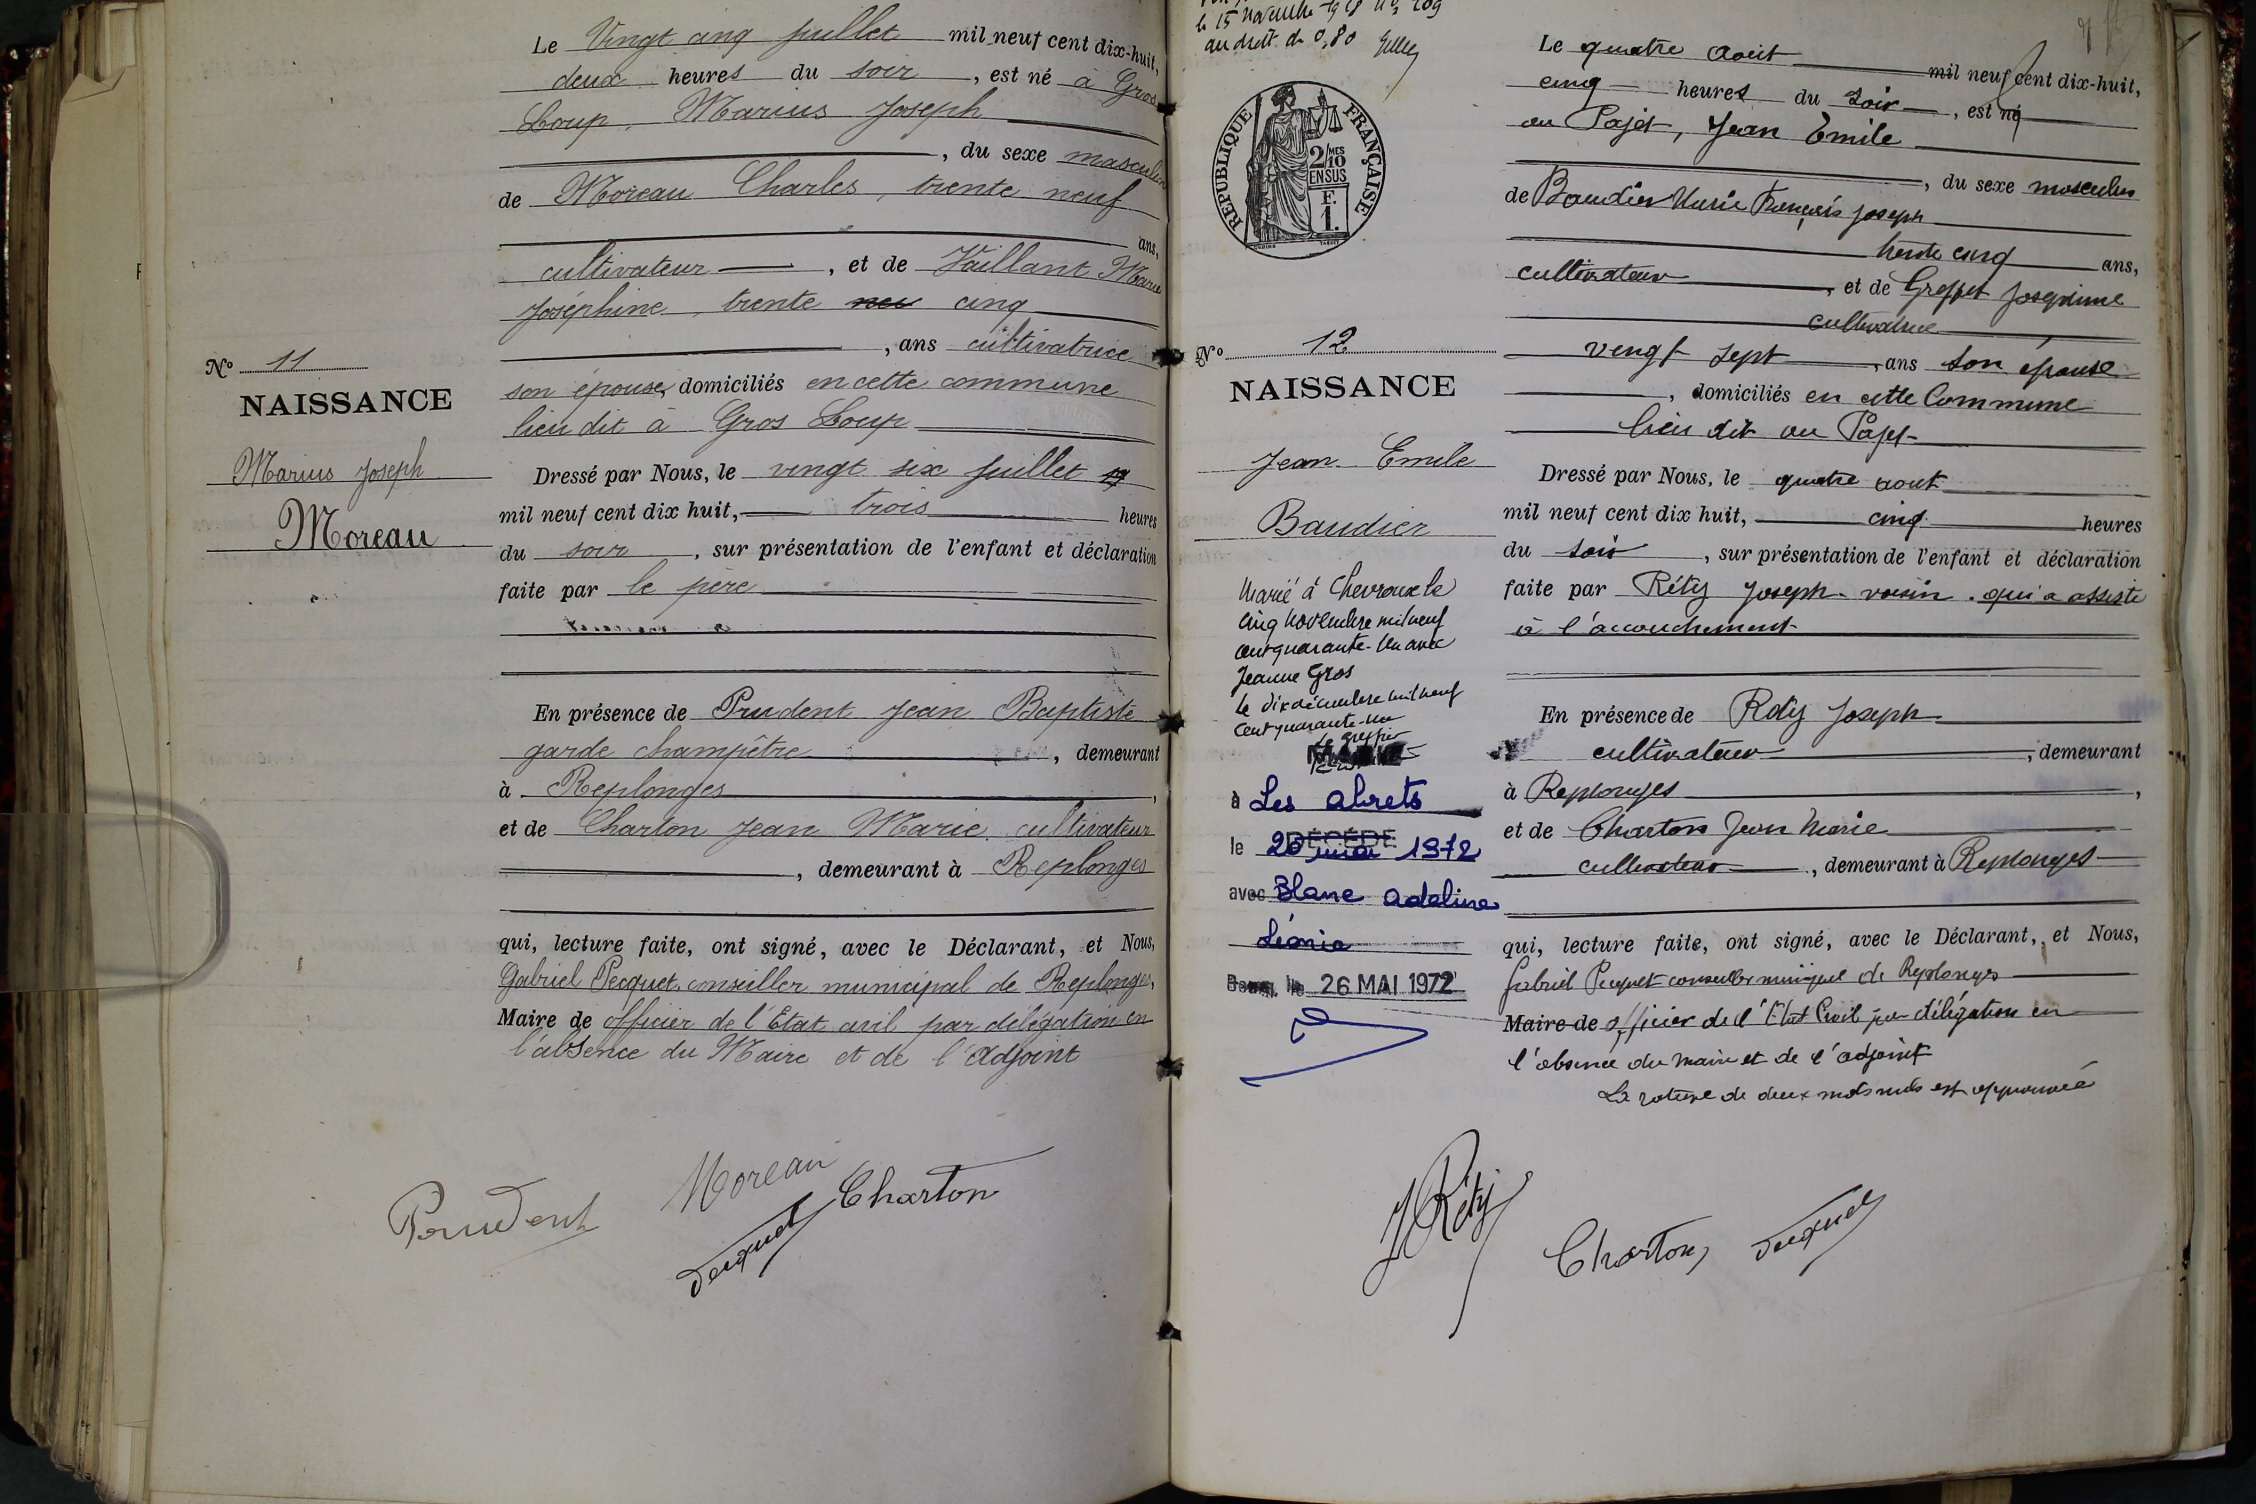 Le Vingt cinq juillet mil neuf cent dix-huit,
deux heures du soir, est né à Gros
Loup, Marius Joseph
, du sexe masculin
de Moreau Charles, trente neuf
ans,
cultivateur, et de Vaillant Marie
Joséphine, trente neu cinq
, ans cultivatrice
son épouse, domiciliés en cette commune
lieu dit à Gros Loup
No 11
NAISSANCE
Marius Joseph
Moreau
Dressé par Nous, le vingt six juillet
mil neuf cent dix huit, trois heures
du soir, sur présentation de l'enfant et déclaration
faite par le père
En présence de Prudent Jean Baptiste
garde champêtre, demeurant
à Replonges,
et de Charton Jean Marie cultivateur
, demeurant à Replonges
qui, lecture faite, ont signé, avec le Déclarant, et Nous,
Gabriel Pecquet conseiller municipal de Replonges,
Maire de officier de l'Etat civil par délégation en
l'absence du Maire et de l'Adjoint
Prudent
Moreau
Charton
Pecquet
le 15 novembre 1918 no 209
au droit de 0,80
RÉPUBLIQUE FRANÇAISE
2/MES
10
EN SUS
F.
1.
No 12
NAISSANCE
Jean Emile
Baudier
Marié à Chevroux le
cinq novembre mil neuf
cent quarante-un avec
Jeanne Gros
le dix décembre mil neuf
cent quarante-un
Le greffier
à Les abrets
DÉCÉDÉ
le 20 mai 1972
avec Blanc Adeline
Léonie
Bourg, le 26 MAI 1972
Le quatre Août mil neuf cent dix-huit,
cinq heures du soir, est né
au Pajet, Jean Emile
, du sexe masculin
de Baudier Marie François Joseph
trente cinq ans,
cultivateur, et de Greffet Joséphine
cultivatrice
vingt sept, ans son épouse
, domiciliés en cette Commune
lieu dit au Pajet
Dressé par Nous, le quatre aout
mil neuf cent dix huit, cinq heures
du soir, sur présentation de l'enfant et déclaration
faite par Réty Joseph voisin qui a assisté
à l'accouchement
En présence de Réty Joseph
cultivateur, demeurant
à Replonges,
et de Charton Jean Marie
cultivateur, demeurant à Replonges
qui, lecture faite, ont signé, avec le Déclarant, et Nous,
Gabriel Pecquet conseiller municipal de Replonges
Maire de officier de l'Etat Civil par délégation en
l'absence du maire et de l'adjoint
La rature de deux mots nuls est approuvée
J Réty
Charton
Pecquet